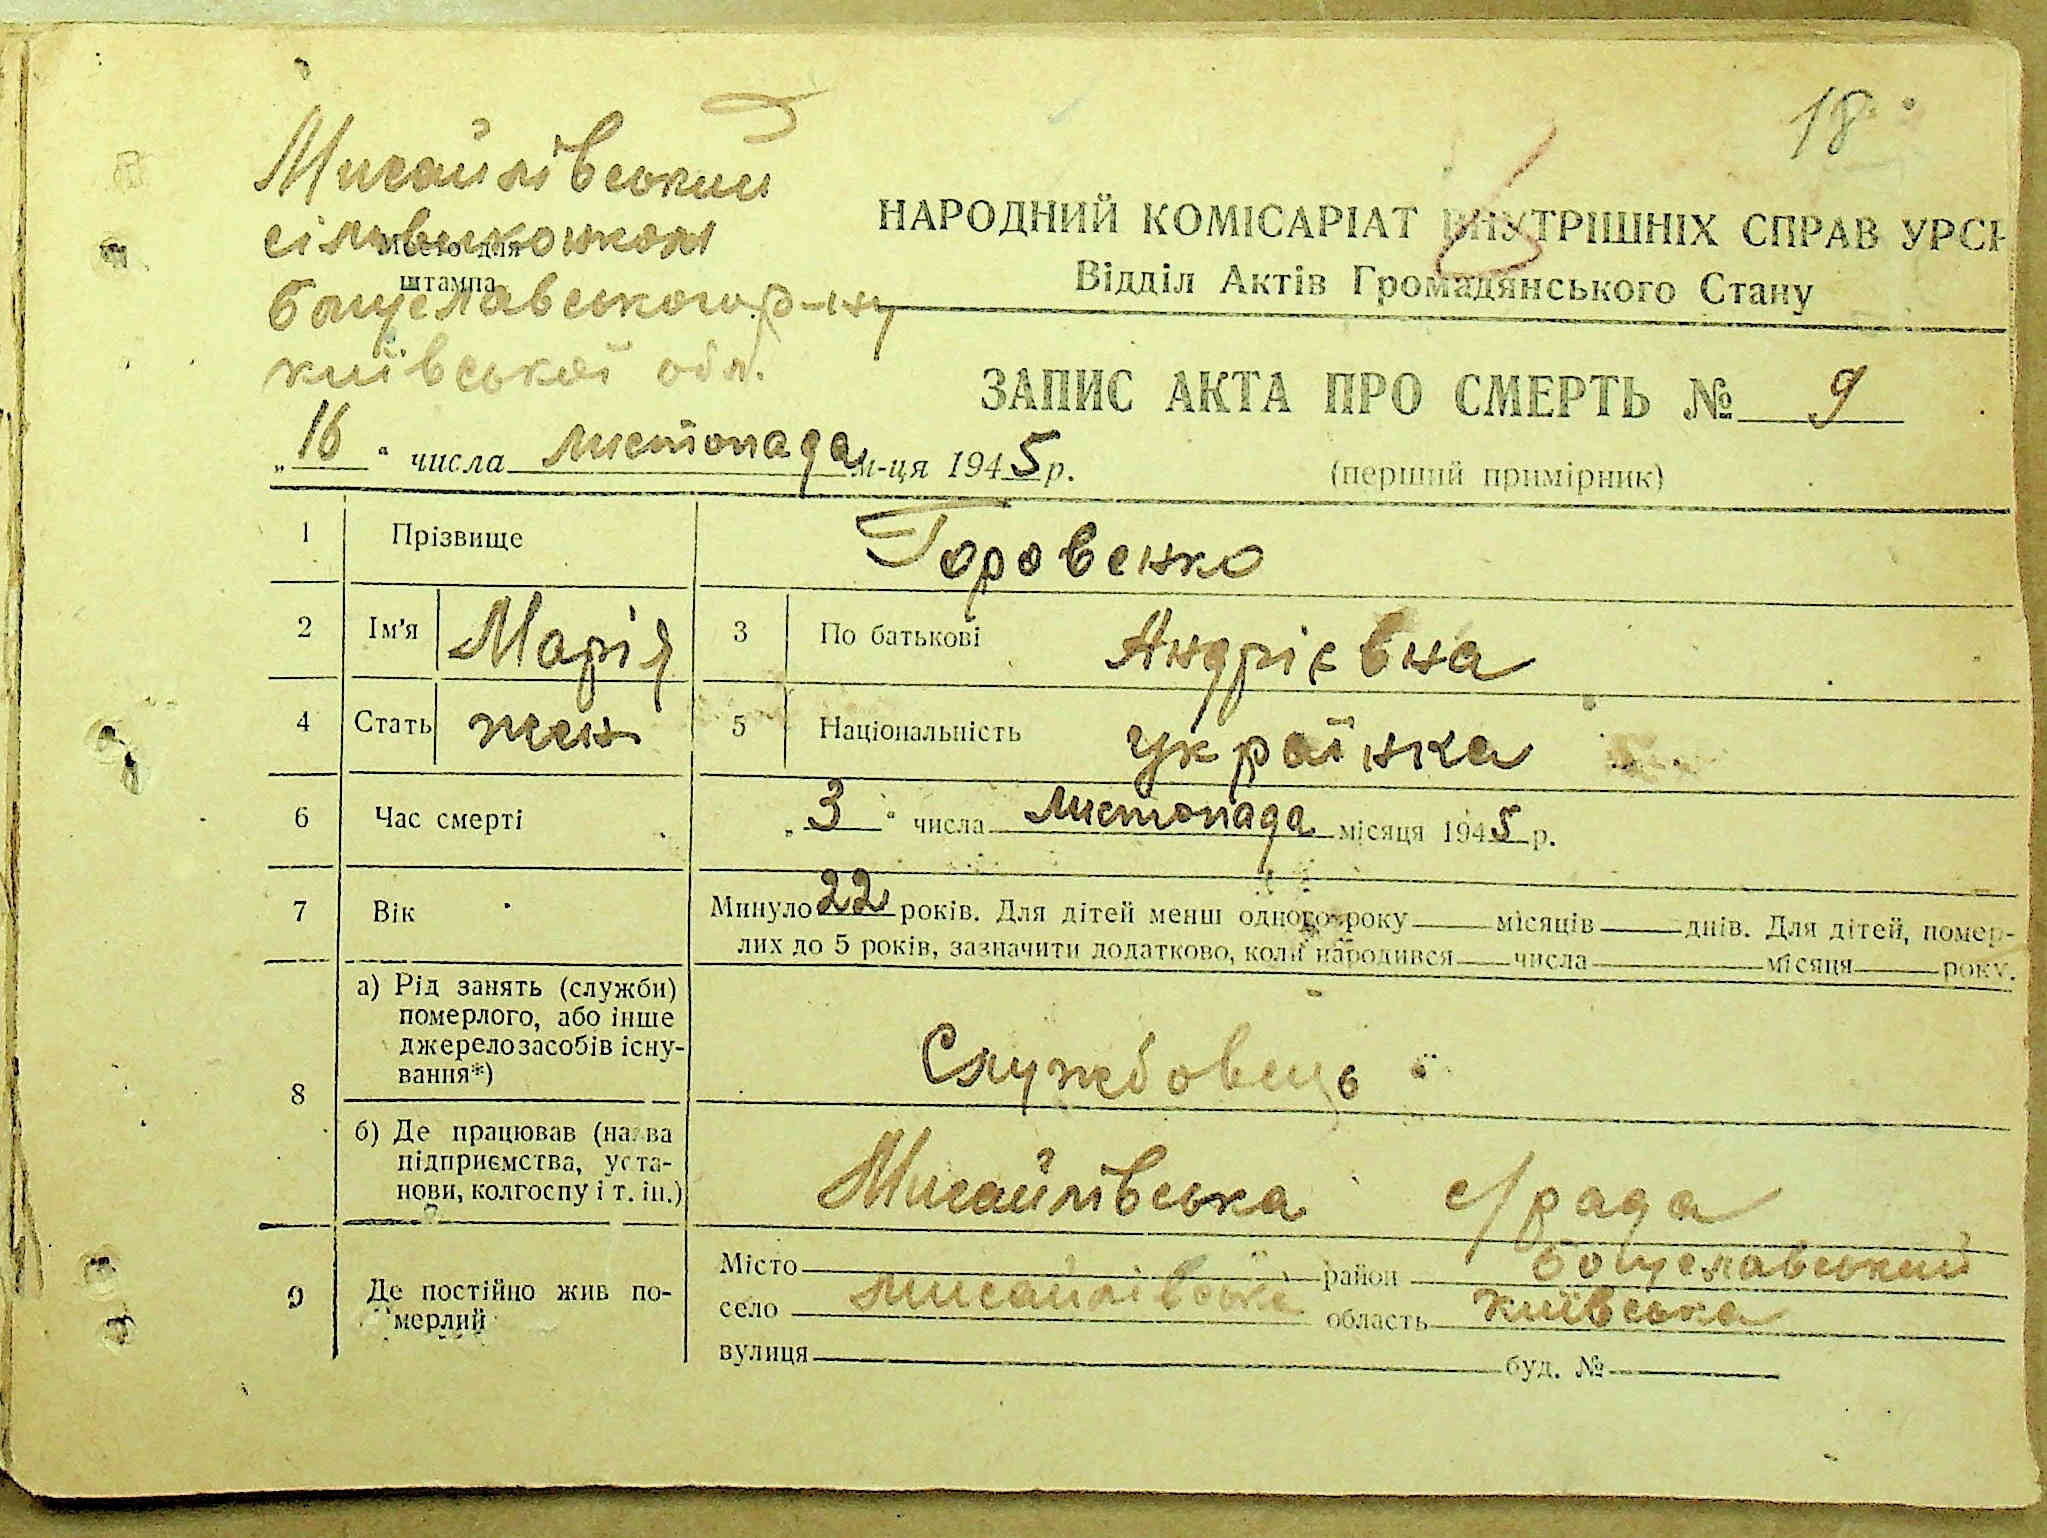 18
Мисайлівський
сільвиконком
Місце для
штампа
Богуславського р-ну
київської обл.
НАРОДНИЙ КОМІСАРІАТ ВНУТРІШНІХ СПРАВ УРСР
Відділ Актів Громадянського Стану
ЗАПИС АКТА ПРО СМЕРТЬ № 9
„16“ числа листопада м-ця 1945 р.
(перший примірник)
1 Прізвище Горовенко
2 Ім'я Марія 3 По батькові Андрієвна
4 Стать жен 5 Національність українка
6 Час смерті „3“ числа листопада місяця 1945 р.
7 Вік Минуло 22 років. Для дітей менш одного року місяців днів. Для дітей, помер-
лих до 5 років, зазначити додатково, коли народився числа місяця року.
8 а) Рід занять (служби)
померлого, або інше
джерело засобів існу-
вання*)
Службовець
б) Де працював (назва
підприємства, уста-
нови, колгоспу і т. ін.)
Мисайлівська с/рада
9 Де постійно жив по-
мерлий
Місто район Богуславський
село мисайлівська область Київська
вулиця буд. №